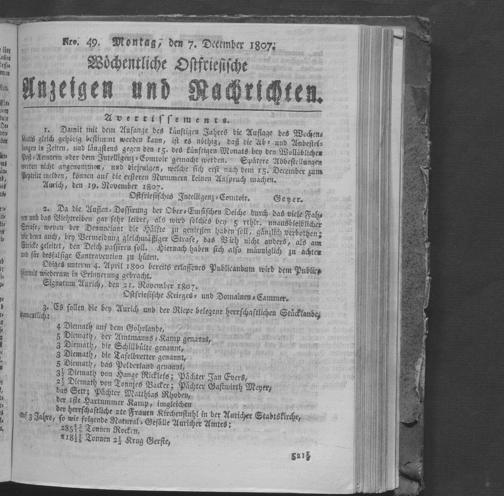 Nro. 49. Montag, den 7. December 1807.
Wöchentliche Ostfriesische
Anzeigen und Nachrichten.
Avertissements.
1. Damit mit dem Anfange des künftigen Jahres die Auflage des Wochen
blatts gleich gehörig bestimmt werden kann, ist es nöthig, daß die Ab- und Anbestel-
lungen in Zeiten, und längstens gegen den 15. des künftigen Monats bey den Wohllöblichen
Post-Aemtern oder dem Intelligenz-Comtoir gemacht werden. Spätere Abbestellungen
werden nicht angenommen, und diejenigen, welche sich erst nach dem 15. December zum
melden, können auf die ersteren Nummern keinen Anspruch machen.
Aurich, den 19. November 1807.
Ostfriesisches Intelligenz-Comtoir. Geyer.
2. Da die Aussen-Dossirung der Ober-Emsischen Deiche durch das viele Fah-
ren und das Viehtreiben gar sehr leidet, als wird solches bey 5 rthlr. unausbleiblicher
Strafe, wovon der Denunciant die Hälfte zu genießen haben soll, gänzlich verbothen;
wie denn auch, bey Vermeidung gleichmäßiger Strafe, das Vieh nicht anders, als am
Stricke geleitet, den Deich passiren soll. Hiernach haben sich also männiglich zu achten
und für desfalsige Contravention zu hüten.
Obiges unterm 4. April 1800 bereits erlassenes Publicandum wird dem Publico
hiemit wiederum in Erinnerung gebracht.
Signatum Aurich, den 21. November 1807.
Ostfriesische Krieges- und Domainen-Cammer.
3. Es sollen die bey Aurich und der Riepe belegene herrschaftlichen Stücklande,
namentlich:
4 Diemath auf dem Gohrlande,
5 Diemath, der Amtmanns-Kamp genannt,
3 Diemath, die Schillbülte genannt,
3 Diemath, die Tafelbretter genannt,
5 Diemath, das Polderland genannt,
3½ Diemath von Hange Ricklefs; Pächter Jan Evers,
2½ Diemath von Tonnjes Backer; Pächter Gastwirth Meyer,
das Sett; Pächter Matthias Rhoden,
der 1ste Hartummer Kamp, imgleichen
der herrschaftliche 2te Frauen Kirchenstuhl in der Auricher Stadtkirche,
auf 3 Jahre, so wie folgende Natural-Gefälle Auricher Amtes;
Tonnen Rocken,
Tonnen 2½ Krug Gerste,
521½